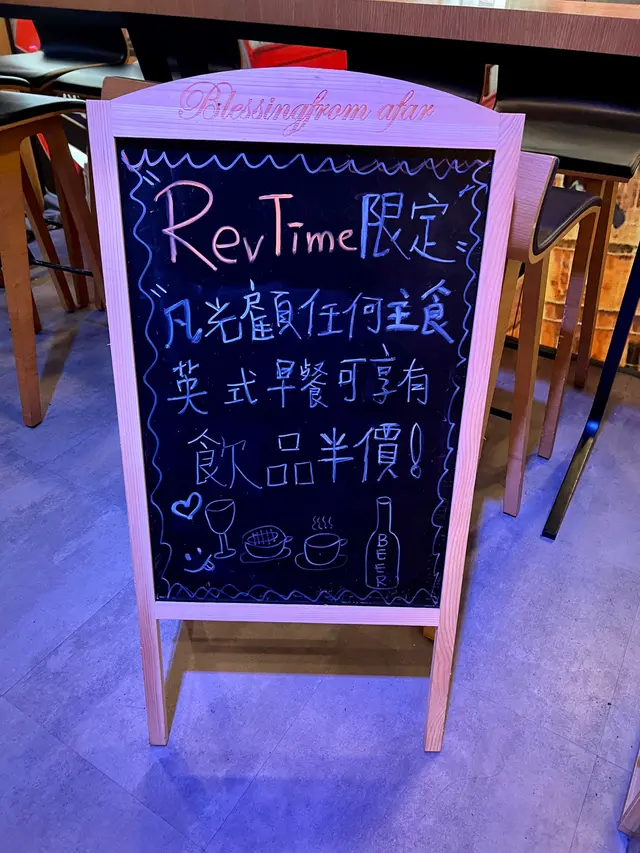 Blessingfrom afar
RevTime限定
凡光顧任何主食
英式早餐可享有
飲品半價!
BEER